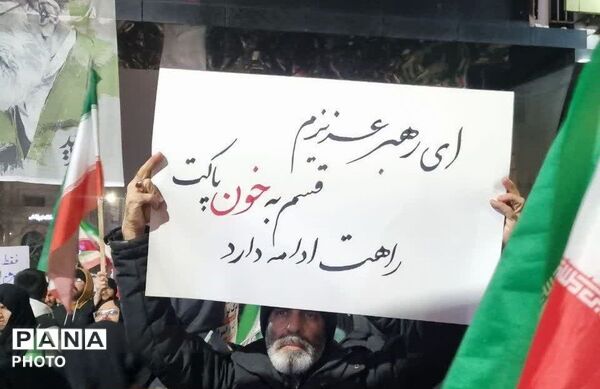 ای رهبر عزیزم
قسم به خون پاکت
راهت ادامه دارد
فقط
PANA
PHOTO